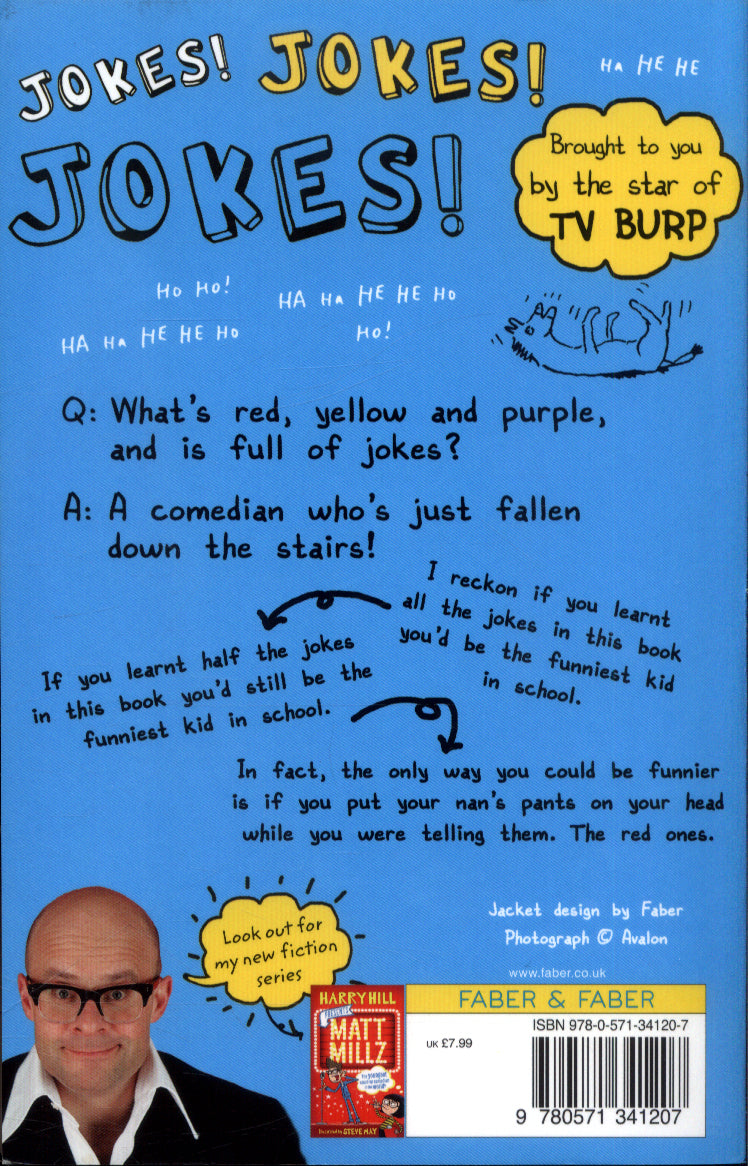 JOKES! JOKES!
JOKES!
HA HE HE
Brought to you
by the star of
TV BURP
HO HO!
HA HA HE HE HO
HA HA HE HE HO
HO!
Q: What's red, yellow and purple,
and is full of jokes?
A: A comedian who's just fallen
down the stairs!
I reckon if you learnt
all the jokes in this book
you'd be the funniest kid
in school.
If you learnt half the jokes
in this book you'd still be the
funniest kid in school.
In fact, the only way you could be funnier
is if you put your nan's pants on your head
while you were telling them. The red ones.
Look out for
my new fiction
series
Jacket design by Faber
Photograph © Avalon
www.faber.co.uk
HARRY HILL
MATT
MILLZ
Illustrated by STEVE MAY
FABER & FABER
UK £7.99
ISBN 978-0-571-34120-7
9 780571 341207